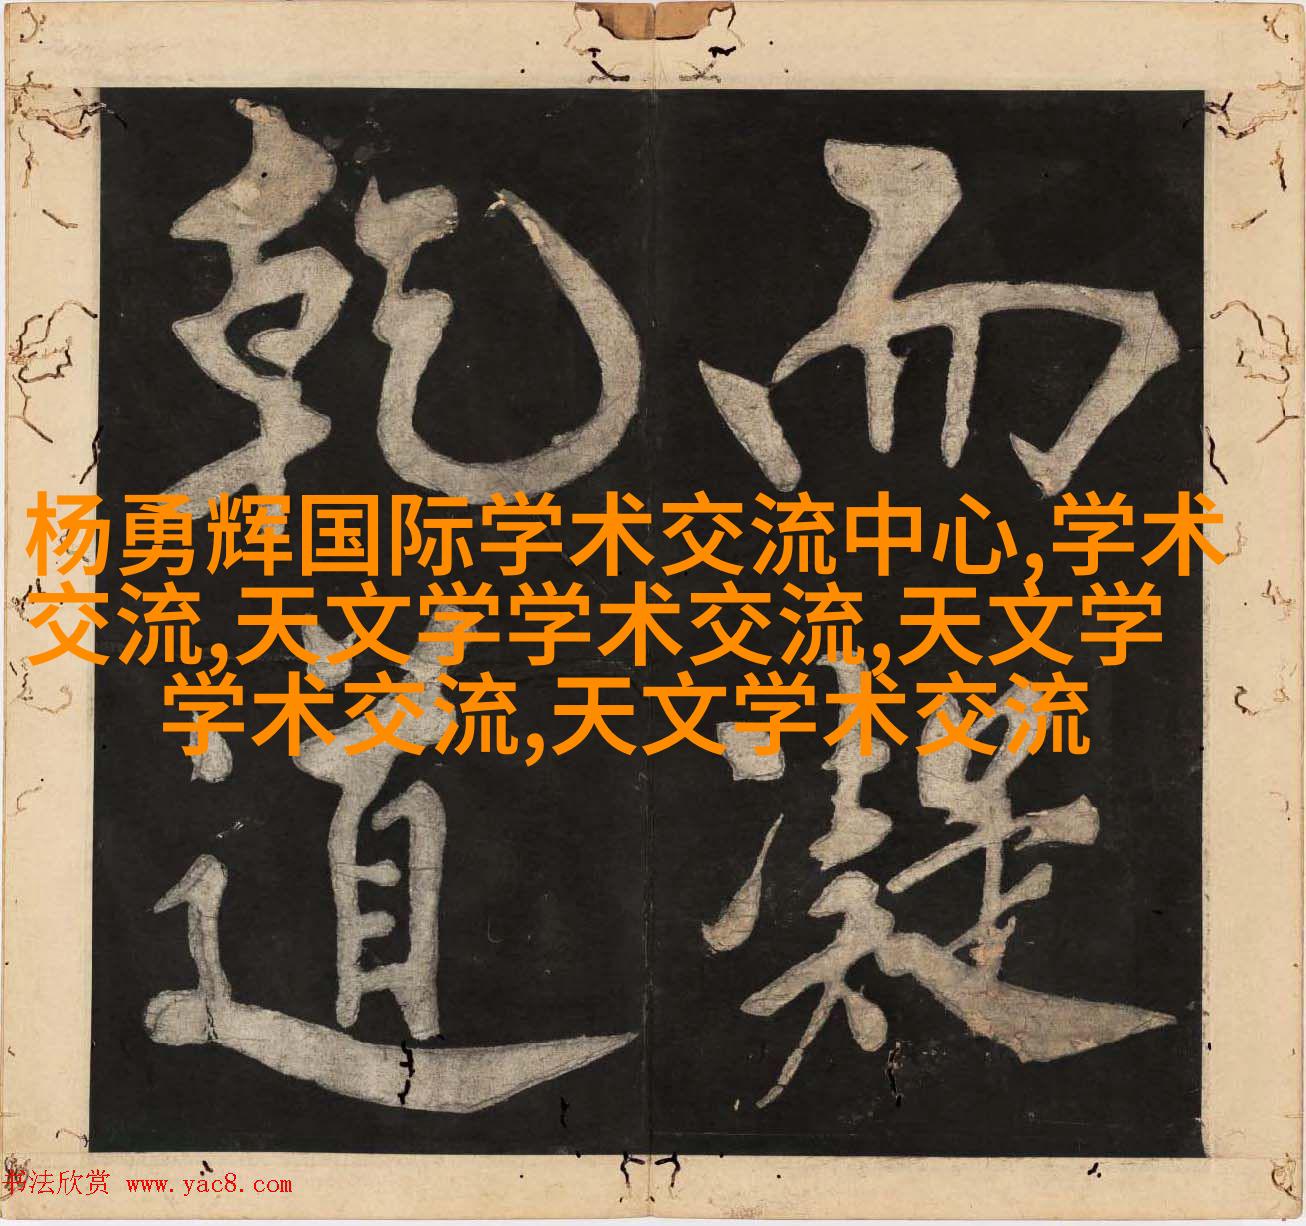 而凝
乾道
杨勇辉国际学术交流中心,学术
交流,天文学学术交流,天文学
学术交流,天文学术交流
书法欣赏 www.yac8.com